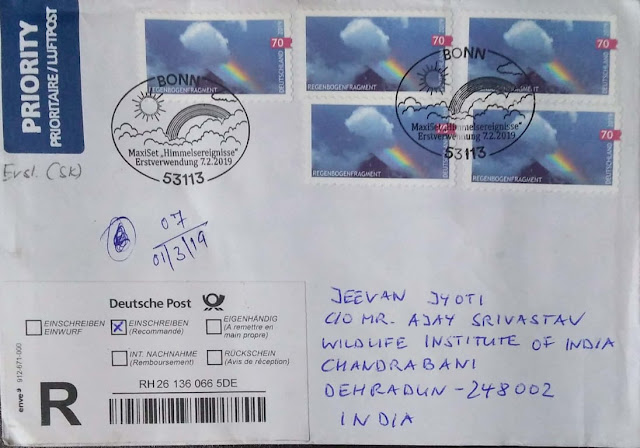 PRIORITY
PRIORITAIRE / LUFTPOST
70
REGENBOGENFRAGMENT
DEUTSCHLAND
70
REGENBOGENFRAGMENT
DEUTSCHLAND
70
REGENBOGENFRAGMENT
DEUTSCHLAND
REGENBOGENFRAGMENT
DEUTSCHLAND
70
REGENBOGENFRAGMENT
DEUTSCHLAND
BONN
MaxiSet „Himmelsereignisse"
Erstverwendung 7.2.2019
53113
BONN
MaxiSet „Himmelsereignisse"
Erstverwendung 7.2.2019
53113
07
01/3/19
Deutsche Post
EINSCHREIBEN
EINWURF
X EINSCHREIBEN
(Recommandé)
EIGENHÄNDIG
(A remettre en
main propre)
INT. NACHNAHME
(Remboursement)
RÜCKSCHEIN
(Avis de réception)
RH 26 136 066 5DE
R
912-671-000
JEEVAN JYOTI
C/O MR. AJAY SRIVASTAV
WILDLIFE INSTITUTE OF INDIA
CHANDRABANI
DEHRADUN - 248002
INDIA